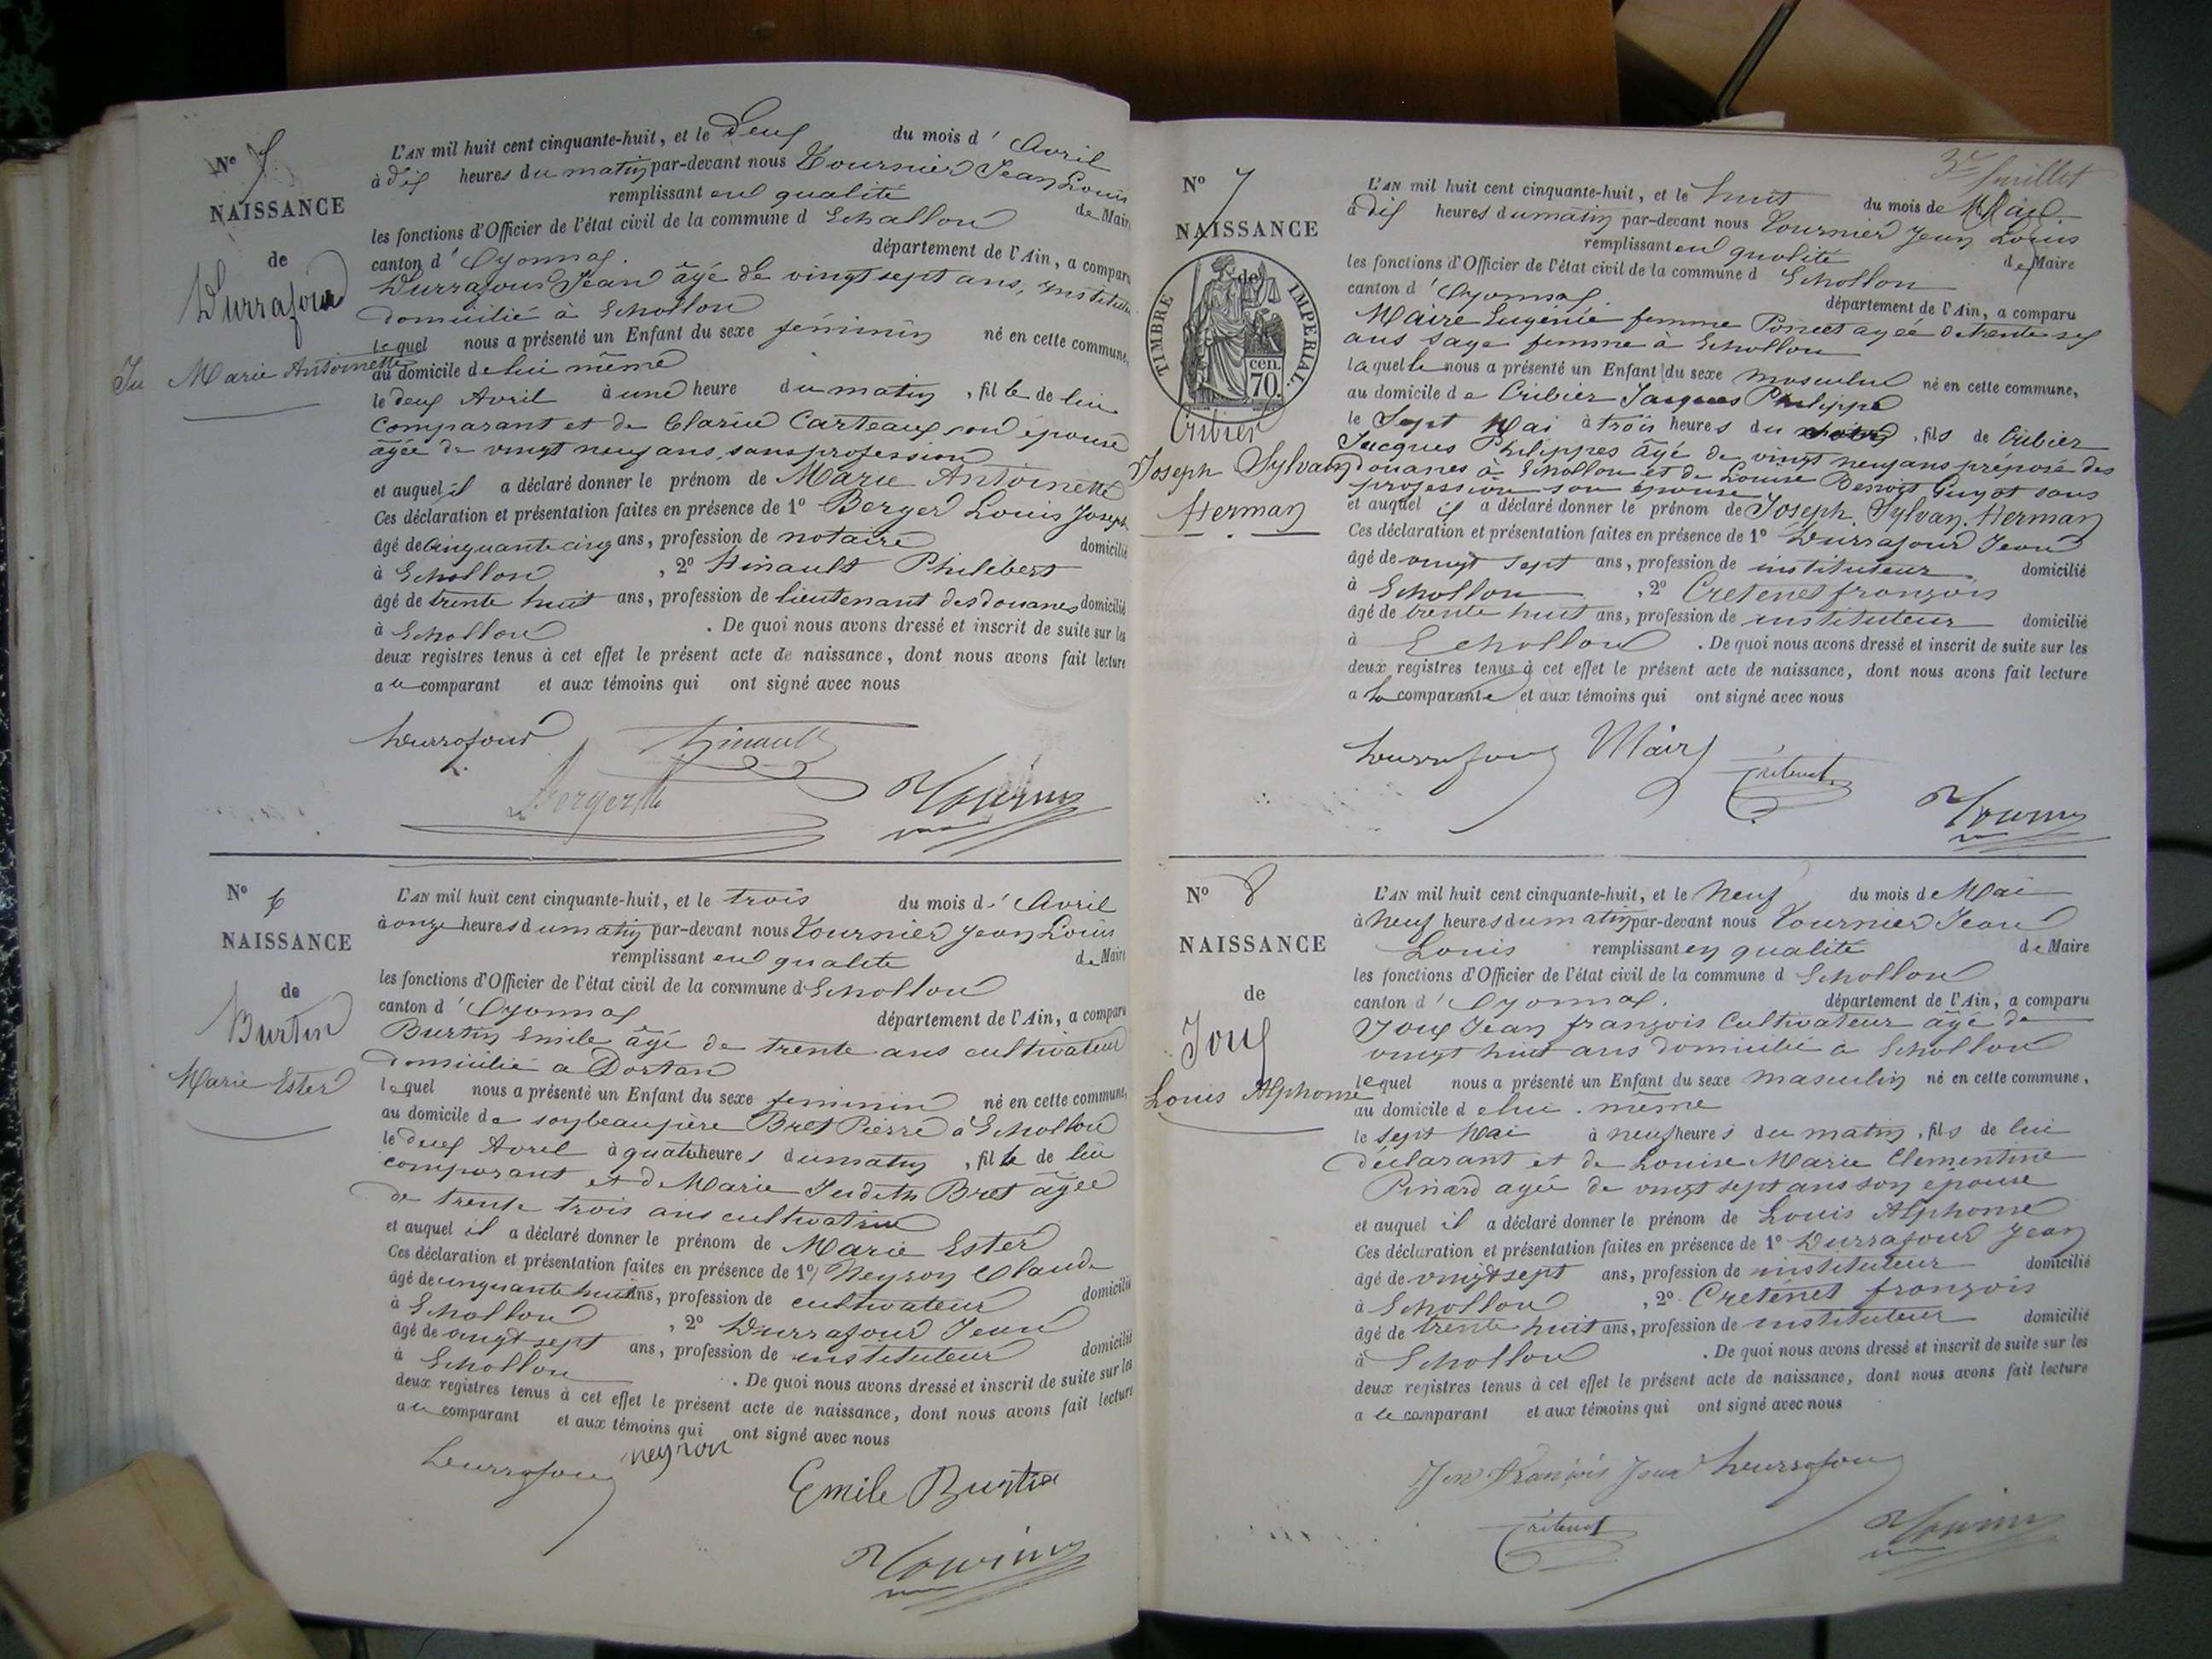 N° 5
NAISSANCE
de
Durrafour
Marie Antoinette
L'AN mil huit cent cinquante-huit, et le deux du mois d' Avril
à dix heures du matin par-devant nous Tournier Jean Louis
remplissant en qualité de Maire
les fonctions d'Officier de l'état civil de la commune d Echallon
canton d' Oyonnax. département de l'Ain, a comparu
Durrafour Jean âgé de vingt sept ans, instituteur
domicilié à Echallon
lequel nous a présenté un Enfant du sexe féminin né en cette commune,
au domicile de lui même
le deux Avril à une heure du matin, fille de lui
comparant et de Clarice Carteaux son épouse
âgée de vingt neuf ans, sans profession
et auquel il a déclaré donner le prénom de Marie Antoinette
Ces déclaration et présentation faites en présence de 1° Berger Louis Joseph
âgé de cinquante cinq ans, profession de notaire domicilié
à Echallon, 2° Hinault Philibert
âgé de trente huit ans, profession de lieutenant des douanes domicilié
à Echallon. De quoi nous avons dressé et inscrit de suite sur les
deux registres tenus à cet effet le présent acte de naissance, dont nous avons fait lecture
au comparant et aux témoins qui ont signé avec nous
Durrafour Hinault
Berger Tournier
N° 6
NAISSANCE
de
Burtin
Marie Ester
L'AN mil huit cent cinquante-huit, et le trois du mois d' Avril
à onze heures du matin par-devant nous Tournier Jean Louis
remplissant en qualité de Maire
les fonctions d'Officier de l'état civil de la commune d Echallon
canton d' Oyonnax département de l'Ain, a comparu
Burtin Emile âgé de trente ans cultivateur
domicilié a Dortan
lequel nous a présenté un Enfant du sexe feminin né en cette commune,
au domicile de son beau père Bret Pierre à Echallon
le deux Avril à quatre heures du matin, fille de lui
comparant et de Marie Judith Bret âgée
de trente trois ans cultivatrice
et auquel il a déclaré donner le prénom de Marie Ester
Ces déclaration et présentation faites en présence de 1° Neyron Claude
âgé de cinquante huit ans, profession de cultivateur domicilié
à Echallon, 2° Durrafour Jean
âgé de vingt sept ans, profession de instituteur domicilié
à Echallon. De quoi nous avons dressé et inscrit de suite sur les
deux registres tenus à cet effet le présent acte de naissance, dont nous avons fait lecture
au comparant et aux témoins qui ont signé avec nous
Durrafour neyron
Emile Burtin
Tournier
3e feuillet
N° 7
NAISSANCE
de
TIMBRE IMPERIAL.
70 cen.
Cribier
Joseph Sylvan
Herman
L'AN mil huit cent cinquante-huit, et le huit du mois de Mai.
à dix heures du matin par-devant nous Tournier Jean Louis
remplissant en qualité de Maire
les fonctions d'Officier de l'état civil de la commune d Echallon
canton d' Oyonnax. département de l'Ain, a comparu
Maire Eugénie femme Poncet agée de trente six
ans sage femme à Echallon
laquelle nous a présenté un Enfant du sexe masculin né en cette commune,
au domicile de Cribier Jacques Philippe
le Sept Mai à trois heures du, fils de Cribier
Jacques Philippes âgé de vingt neuf ans préposé des
douanes à Echallon et de Louise Benoit Guyot sans
profession son épouse
et auquel il a déclaré donner le prénom de Joseph, Sylvan, Herman
Ces déclaration et présentation faites en présence de 1° Durrafour Jean
âgé de vingt sept ans, profession de instituteur domicilié
à Echallon, 2° Cretenet françois
âgé de trente huit ans, profession de instituteur domicilié
à Echallon. De quoi nous avons dressé et inscrit de suite sur les
deux registres tenus à cet effet le présent acte de naissance, dont nous avons fait lecture
a la comparante et aux témoins qui ont signé avec nous
Durrafour Maire Cretenet
Tournier
N° 8
NAISSANCE
de
Joux
Louis Alphonse
L'AN mil huit cent cinquante-huit, et le Neuf du mois de Mai
à Neuf heures du matin par-devant nous Tournier Jean
Louis remplissant en qualité de Maire
les fonctions d'Officier de l'état civil de la commune d Echallon
canton d' Oyonnax. département de l'Ain, a comparu
Joux Jean françois Cultivateur âgé de
vingt huit ans domicilié a Echallon
lequel nous a présenté un Enfant du sexe masculin né en cette commune,
au domicile de lui même
le sept Mai à neuf heures du matin, fils de lui
déclarant et de Louise Marie Clementine
Pinard agée de vingt sept ans son épouse
et auquel il a déclaré donner le prénom de Louis Alphonse
Ces déclaration et présentation faites en présence de 1° Durrafour Jean
âgé de vingt sept ans, profession de instituteur domicilié
à Echallon, 2° Cretenet françois
âgé de trente huit ans, profession de instituteur domicilié
à Echallon. De quoi nous avons dressé et inscrit de suite sur les
deux registres tenus à cet effet le présent acte de naissance, dont nous avons fait lecture
a le comparant et aux témoins qui ont signé avec nous
Durrafour
Cretenet Tournier